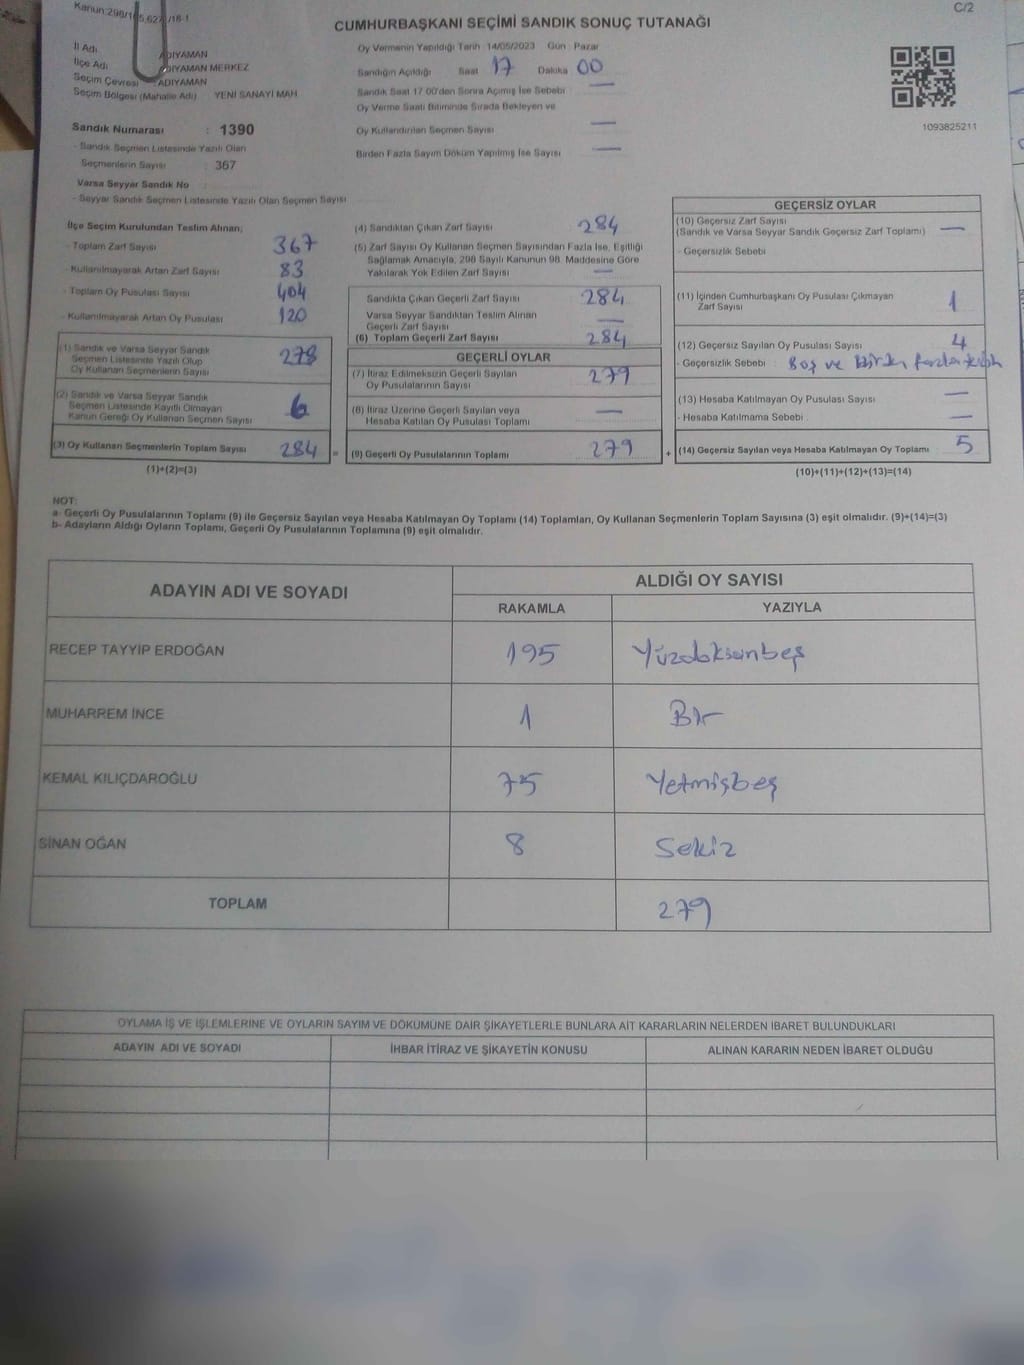 Kanun:298/1
C/2
CUMHURBAŞKANI SEÇİMİ SANDIK SONUÇ TUTANAĞI
İl Adı ADIYAMAN
İlçe Adı ADIYAMAN MERKEZ
Seçim Çevresi ADIYAMAN
Seçim Bölgesi (Mahalle Adı) YENİ SANAYİ MAH
Oy Vermenin Yapıldığı Tarih 14/05/2023 Gün : Pazar
Sandığın Açıldığı Saat 17 Dakika 00
Sandık Saat 17 00'den Sonra Açılmış İse Sebebi : —
Oy Verme Saati Bitiminde Sırada Bekleyen ve
Oy Kullandırılan Seçmen Sayısı —
Birden Fazla Sayım Döküm Yapılmış İse Sayısı —
1093825211
Sandık Numarası : 1390
- Sandık Seçmen Listesinde Yazılı Olan
Seçmenlerin Sayısı : 367
Varsa Seyyar Sandık No
- Seyyar Sandık Seçmen Listesinde Yazılı Olan Seçmen Sayısı
İlçe Seçim Kurulundan Teslim Alınan;
- Toplam Zarf Sayısı 367
- Kullanılmayarak Artan Zarf Sayısı 83
- Toplam Oy Pusulası Sayısı 404
- Kullanılmayarak Artan Oy Pusulası 120
(1) Sandık ve Varsa Seyyar Sandık
Seçmen Listesinde Yazılı Olup
Oy Kullanan Seçmenlerin Sayısı 278
(2) Sandık ve Varsa Seyyar Sandık
Seçmen Listesinde Kayıtlı Olmayan
Kanun Gereği Oy Kullanan Seçmen Sayısı 6
(3) Oy Kullanan Seçmenlerin Toplam Sayısı 284 =
(1)+(2)=(3)
(4) Sandıktan Çıkan Zarf Sayısı 284
(5) Zarf Sayısı Oy Kullanan Seçmen Sayısından Fazla İse, Eşitliği
Sağlamak Amacıyla, 298 Sayılı Kanunun 98. Maddesine Göre
Yakılarak Yok Edilen Zarf Sayısı —
Sandıkta Çıkan Geçerli Zarf Sayısı 284
Varsa Seyyar Sandıktan Teslim Alınan
Geçerli Zarf Sayısı —
(6) Toplam Geçerli Zarf Sayısı 284
GEÇERLİ OYLAR
(7) İtiraz Edilmeksizin Geçerli Sayılan
Oy Pusulalarının Sayısı 279
(8) İtiraz Üzerine Geçerli Sayılan veya
Hesaba Katılan Oy Pusulası Toplamı —
(9) Geçerli Oy Pusulalarının Toplamı 279 +
GEÇERSİZ OYLAR
(10) Geçersiz Zarf Sayısı
(Sandık ve Varsa Seyyar Sandık Geçersiz Zarf Toplamı) —
- Geçersizlik Sebebi
(11) İçinden Cumhurbaşkanı Oy Pusulası Çıkmayan
Zarf Sayısı 1
(12) Geçersiz Sayılan Oy Pusulası Sayısı 4
- Geçersizlik Sebebi : Boş ve Birden fazla
(13) Hesaba Katılmayan Oy Pusulası Sayısı —
- Hesaba Katılmama Sebebi —
(14) Geçersiz Sayılan veya Hesaba Katılmayan Oy Toplamı 5
(10)+(11)+(12)+(13)=(14)
NOT:
a- Geçerli Oy Pusulalarının Toplamı (9) ile Geçersiz Sayılan veya Hesaba Katılmayan Oy Toplamı (14) Toplamları, Oy Kullanan Seçmenlerin Toplam Sayısına (3) eşit olmalıdır. (9)+(14)=(3)
b- Adayların Aldığı Oyların Toplamı, Geçerli Oy Pusulalarının Toplamına (9) eşit olmalıdır.
ADAYIN ADI VE SOYADI
ALDIĞI OY SAYISI
RAKAMLA YAZIYLA
RECEP TAYYİP ERDOĞAN 195 Yüzdoksanbeş
MUHARREM İNCE 1 Bir
KEMAL KILIÇDAROĞLU 75 Yetmişbeş
SİNAN OĞAN 8 Sekiz
TOPLAM 279
OYLAMA İŞ VE İŞLEMLERİNE VE OYLARIN SAYIM VE DÖKÜMÜNE DAİR ŞİKAYETLERLE BUNLARA AİT KARARLARIN NELERDEN İBARET BULUNDUKLARI
ADAYIN ADI VE SOYADI İHBAR İTİRAZ VE ŞİKAYETİN KONUSU ALINAN KARARIN NEDEN İBARET OLDUĞU